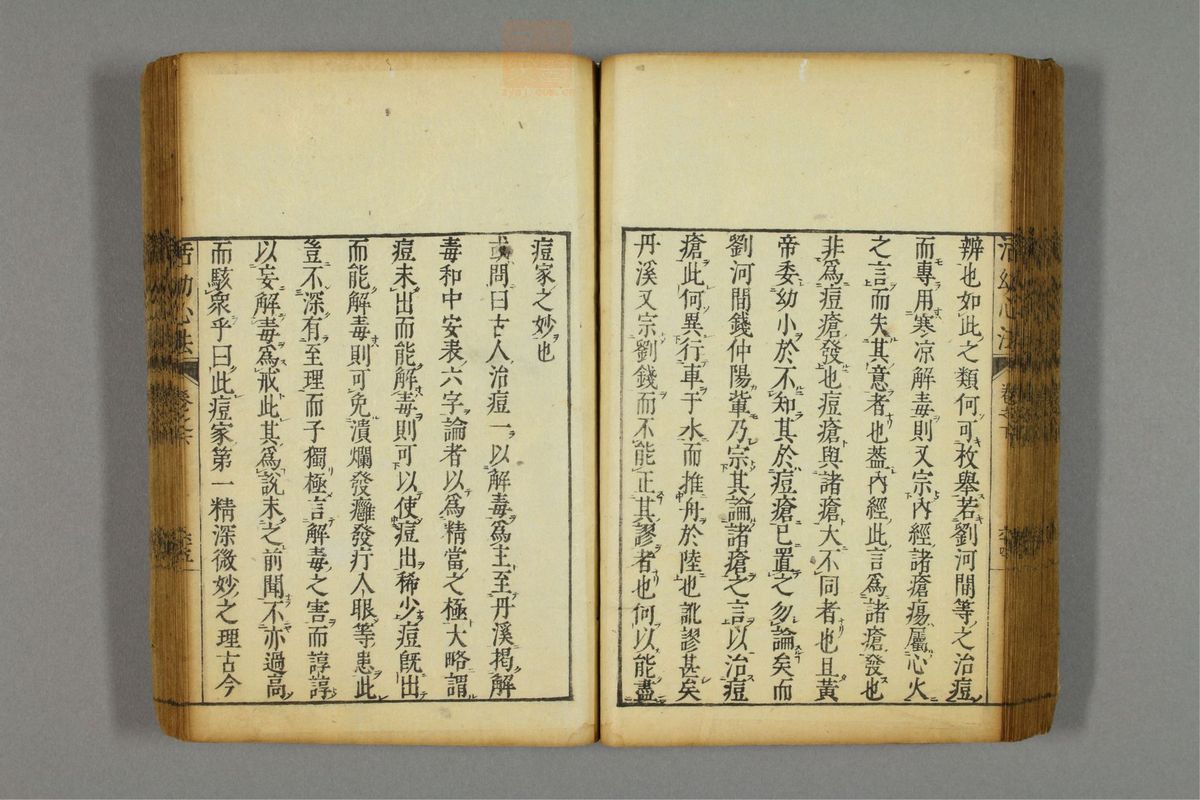 辨也如此之類何可枚舉若劉河間等之治痘
而專用寒凉解毒則又宗內經諸瘡瘍屬心火
之言而失其意者也蓋內經此言爲諸瘡發也
非爲痘瘡發也痘瘡與諸瘡大不同者也且黃
帝委幼小於不知其於痘瘡已置之勿論矣而
劉河間錢仲陽輩乃宗其論諸瘡之言以治痘
瘡此何異行車于水而推舟於陸也訛謬甚矣
丹溪又宗劉錢而不能正其謬者也何以能盡
痘家之妙也
或問曰古人治痘一以解毒爲主至丹溪揭解
毒和中安表六字論者以爲精當之極大略謂
痘未出而能解毒則可以使痘出稀少痘旣出
而能解毒則可免潰爛發癰發疔入眼等患此
豈不深有至理而子獨極言解毒之害而諄諄
以妄解毒爲戒此其爲說未之前聞不亦過高
而駭衆乎曰此痘家第一精深微妙之理古今
活幼心法